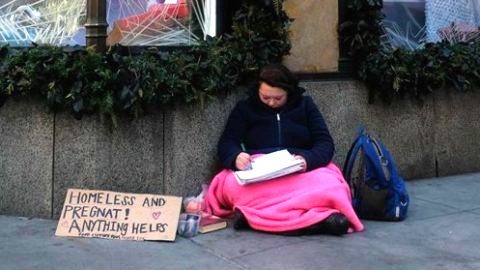 HOMELESS AND
PREGNAT!
ANYTHING HELPS